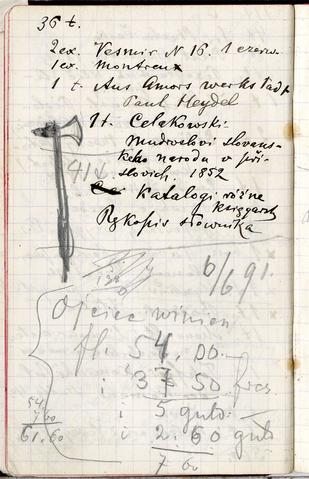 36 t.
2 ex. Vesmir N 16. 1 czerw.
1 ex. Montreux
1 t. Aus Amors werkstadt
Paul Heydel
1 t. Celakowski
Mudroslovi slovans-
keho narodu v při-
slovich, 1852
414
Katalogi różne
księgarń
Rękopis słownika
6/6 91.
Ojciec winien
fl. 54. 00.
i 37 50 frcs.
i 5 guld.
i 2. 60 guld
7 60
54
7 60
61.60